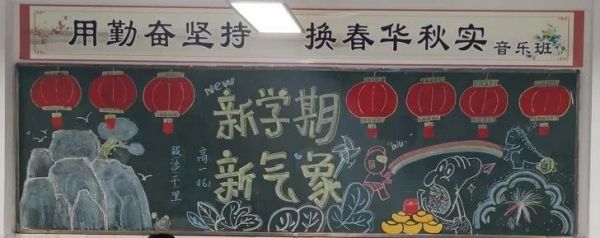 用勤奋坚持 换春华秋实 音乐班
New
新学期
新气象
高一(16)
跋涉千里
"biu~